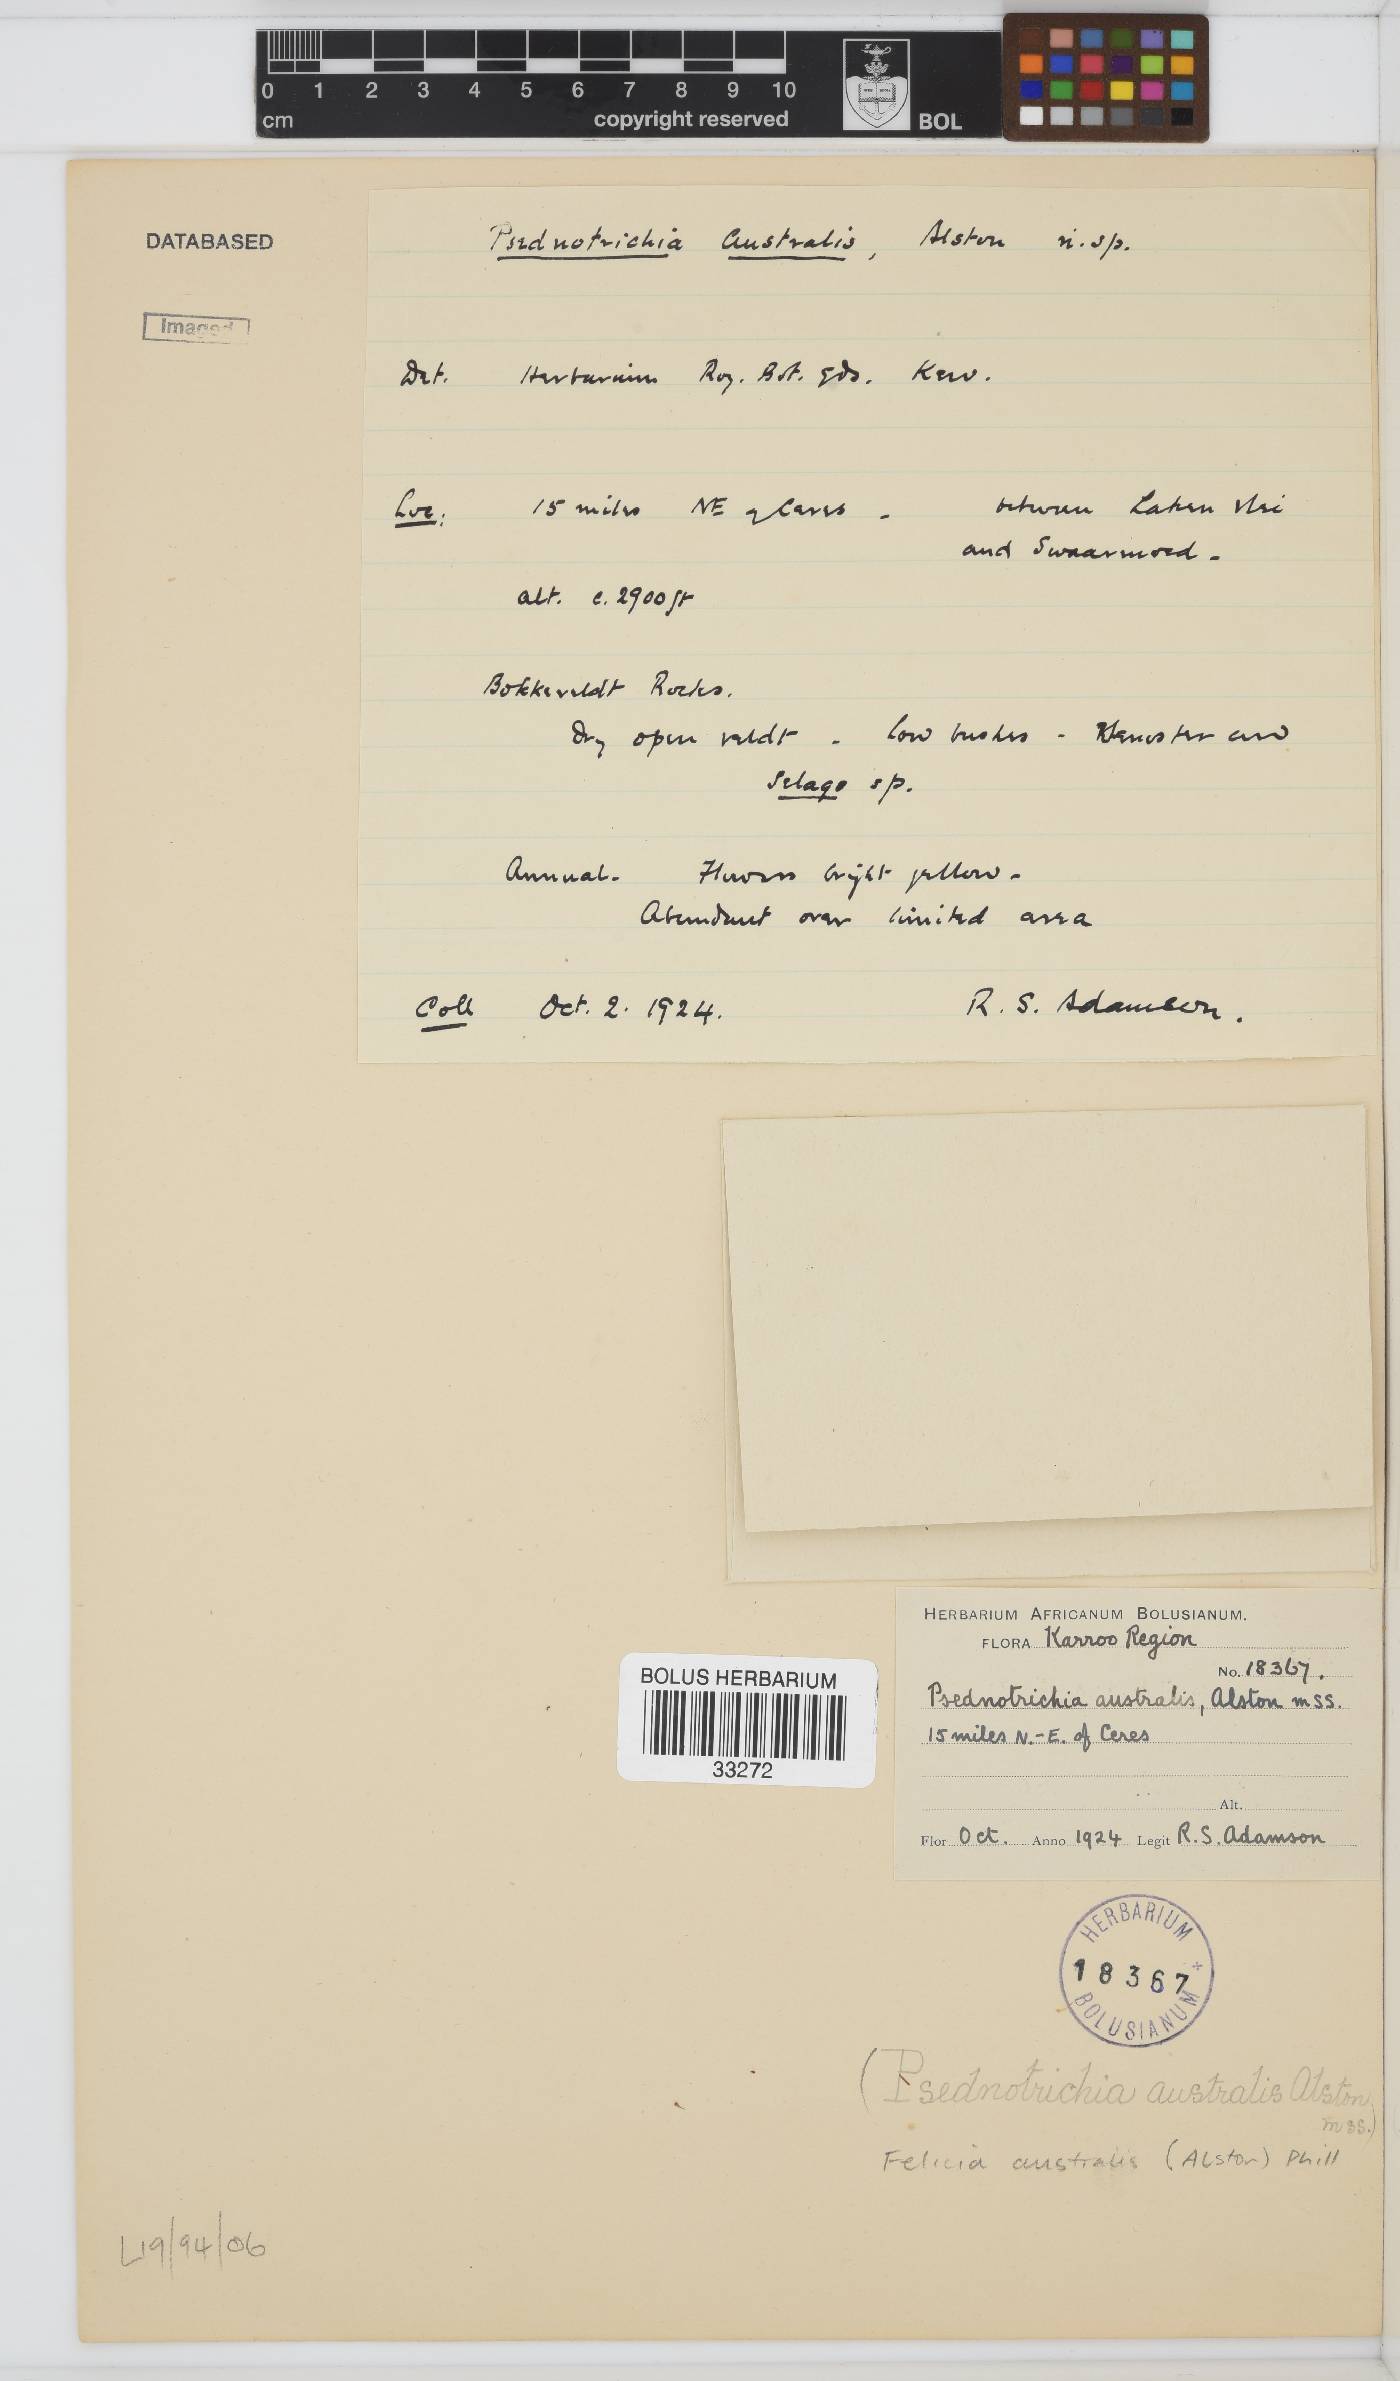 0 1 2 3 4 5 6 7 8 9 10
cm copyright reserved BOL
DATABASED
Imaged
Psednotrichia australis, Alston n.sp.
Det. Herbarium Roy. Bot. Gds. Kew.
Loc: 15 miles NE of Ceres - between Laken Vlei
and Swaarmoed -
alt. c. 2900 ft
Bokkeveldt Rocks.
Dry open veldt - low bushes - Renoster and
Selago sp.
Annual - Flowers bright yellow -
Abundant over limited area
Coll Oct. 2. 1924. R. S. Adamson.
HERBARIUM AFRICANUM BOLUSIANUM.
FLORA Karroo Region
No. 18367.
Psednotrichia australis, Alston mss.
15 miles N.-E. of Ceres
Alt.
Flor Oct. Anno 1924 Legit R.S. Adamson
BOLUS HERBARIUM
33272
HERBARIUM
18367
BOLUSIANUM
(Psednotrichia australis Alston
mss.)
Felicia australis (Alston) Phill
L19/94/06